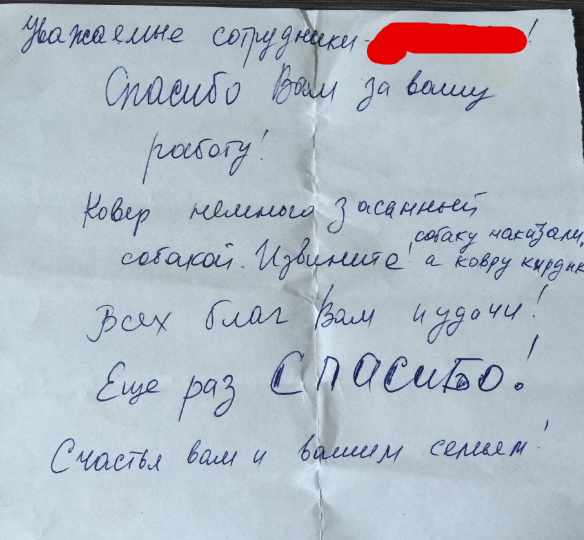 Уважаемые сотрудники - !
Спасибо Вам за вашу
работу!
Ковер немного засанный
собакой. Извините! собаку наказали,
а ковру кырдык
Всех благ Вам и удачи!
Еще раз СПАСИБО!
Счастья вам и вашим семьям!